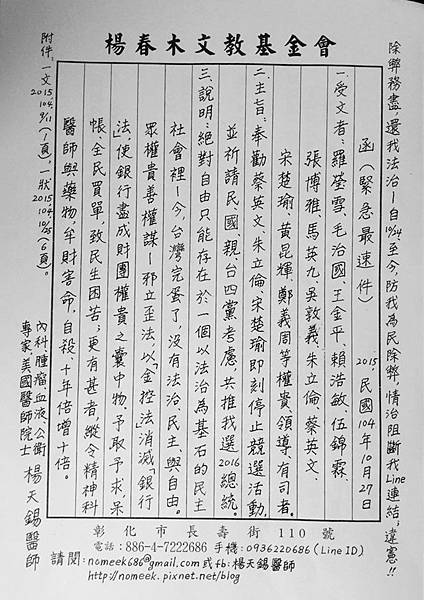 楊春木文教基金會
除弊務盡,還我法治—自10/24至今,防我為民除弊,情治阻斷我Line連結;違憲!!
函(緊急最速件) 2015,民國104年10月27日
一.受文者:羅瑩雪、毛治國、王金平、賴浩敏、伍錦霖、
張博雅、馬英九、吳敦義、朱立倫、蔡英文、
宋楚瑜、黃昆輝、鄭義周等權貴、領導、有司者。
二.主旨:奉勸蔡英文、朱立倫、宋楚瑜即刻停止競選活動,
並祈請民國、親、台四黨考慮,共推我選2016總統。
三.說明:絕對自由只能存在於一個以法治為基石的民主
社會裡—今,台灣完蛋了,沒有法治、民主與自由。
眾權貴善權謀—邪立歪法,以「金控法」消滅「銀行
法」,使銀行盡成財團權貴之囊中物,予取予求,呆
帳,全民買單,致民生困苦;更有甚者,縱令精神科
醫師與藥物,牟財害命,自殺,十年倍增十倍。
附件:一文2015.104.9/11(1頁)。一狀2015.104.10/25(6頁)。
內科腫瘤、血液、公衛
專家美國醫師院士 楊天錫醫師
彰化市長壽街110號
電話:886-4-7222686 手機:0936220686(Line ID)
請閱:nomeek686@gmail.com或fb:楊天錫醫師
http://nomeek.pixnet.net/blog